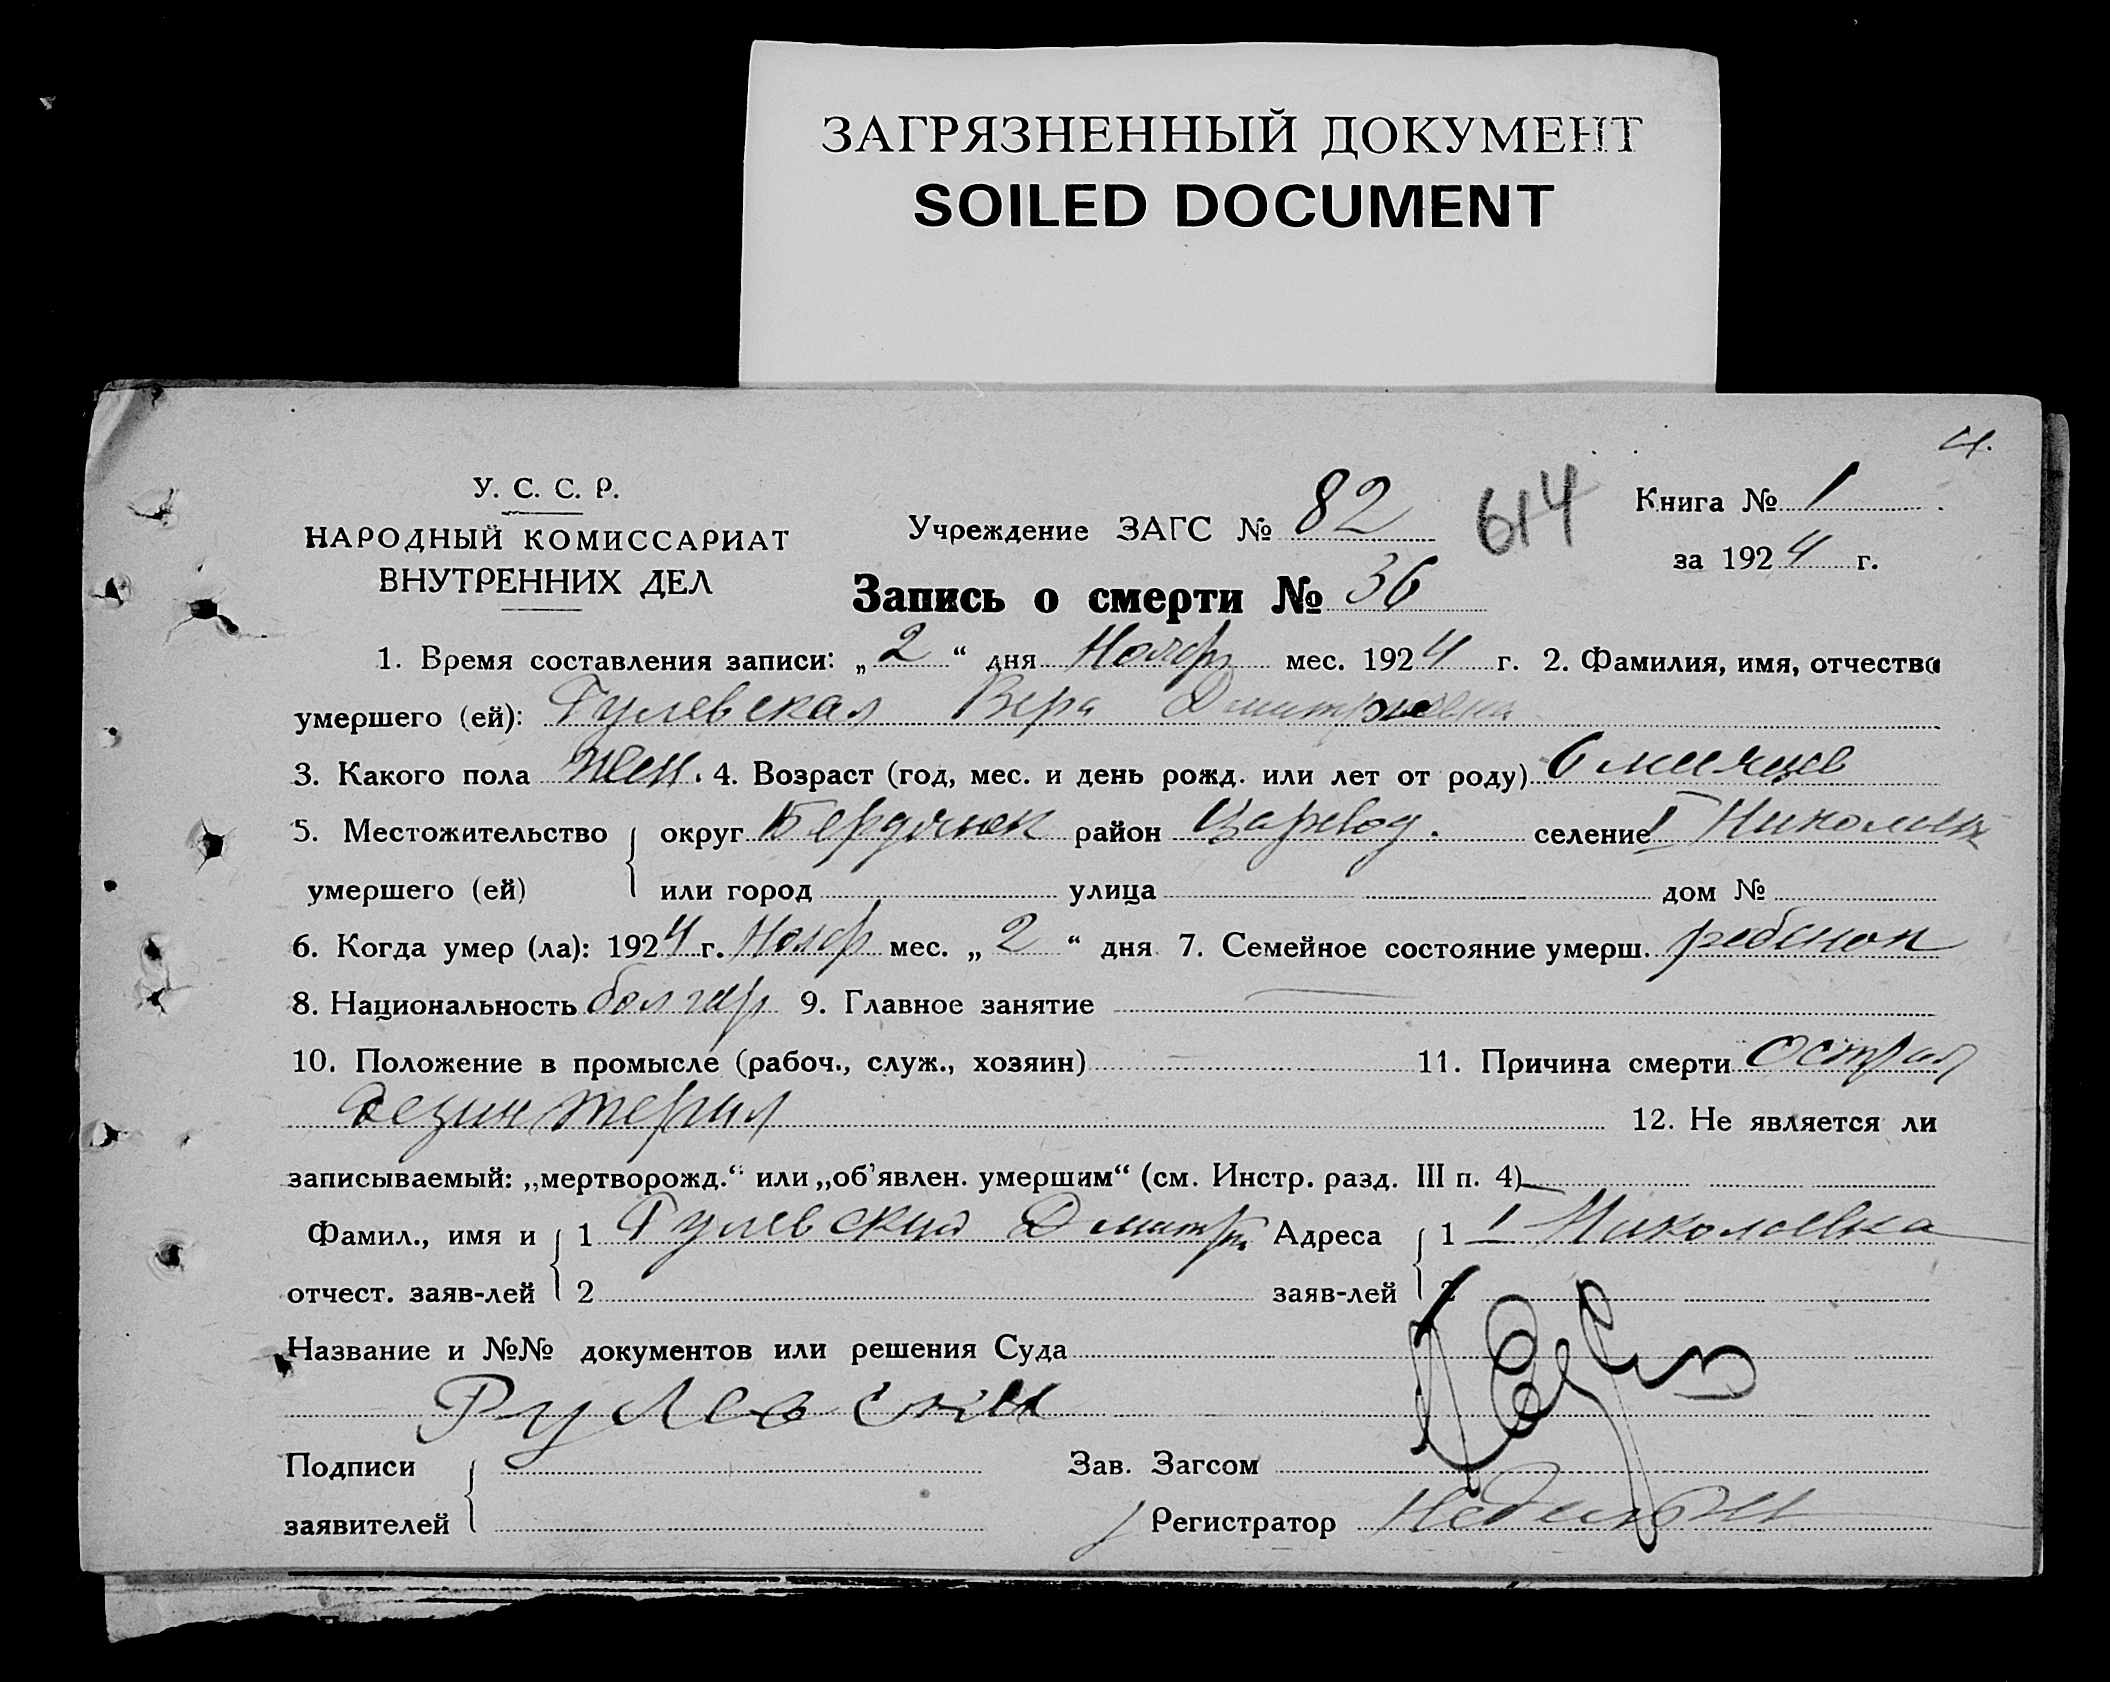 ЗАГРЯЗНЕННЫЙ ДОКУМЕНТ
SOILED DOCUMENT
4.
У. С. С. Р.
НАРОДНЫЙ КОМИССАРИАТ
ВНУТРЕННИХ ДЕЛ
Учреждение ЗАГС № 82
614
Книга № 1
за 1924 г.
Запись о смерти № 36
1. Время составления записи: „2“ дня Ноябр мес. 1924 г. 2. Фамилия, имя, отчество
умершего (ей): Гулевская Вера Дмитриевна
3. Какого пола жен. 4. Возраст (год, мес. и день рожд. или лет от роду) 6 месяцев
5. Местожительство округ Бердянск район Царевод. селение I Николаевк
умершего (ей) или город улица дом №
6. Когда умер (ла): 1924 г. Ноябр мес. „2“ дня 7. Семейное состояние умерш. ребенок
8. Национальность болгар 9. Главное занятие
10. Положение в промысле (рабоч., служ., хозяин) 11. Причина смерти Острая
дезинтерия 12. Не является ли
записываемый: „мертворожд.“ или „об'явлен. умершим“ (см. Инстр. разд. III п. 4)
Фамил., имя и 1 Гулевский Дмитри Адреса 1 I Николаевка
отчест. заяв-лей 2 заяв-лей 2
Название и №№ документов или решения Суда
Гулевский
Подписи Зав. Загсом
заявителей Регистратор